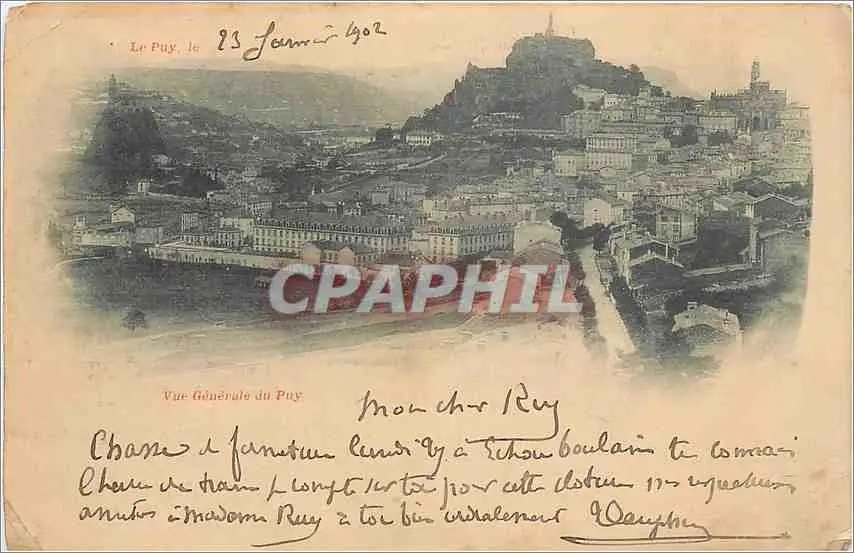 Le Puy, le 23 Janvier 1902
CPAPHIL
Vue Générale du Puy
Mon cher Rey
Chasse de fermeture lundi 27 à te connais
l'heure de train je compte sur toi pour cette cloture mes respectueuses
amitiés à Madame Rey à toi bien cordialement